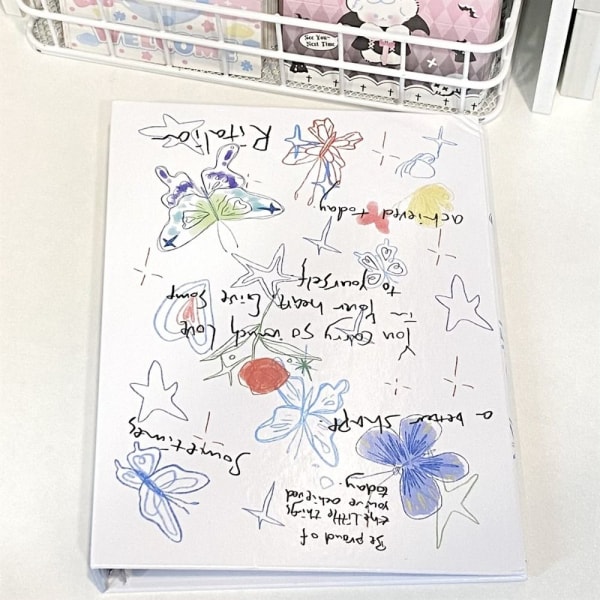 WELCOME
See You~
Next Time
Be proud of
the little things
you've achieved
today.
Sometimes
a better shape
You carry so much love
in
your heart, Give some
to yourself
achieved today.
Ritalia